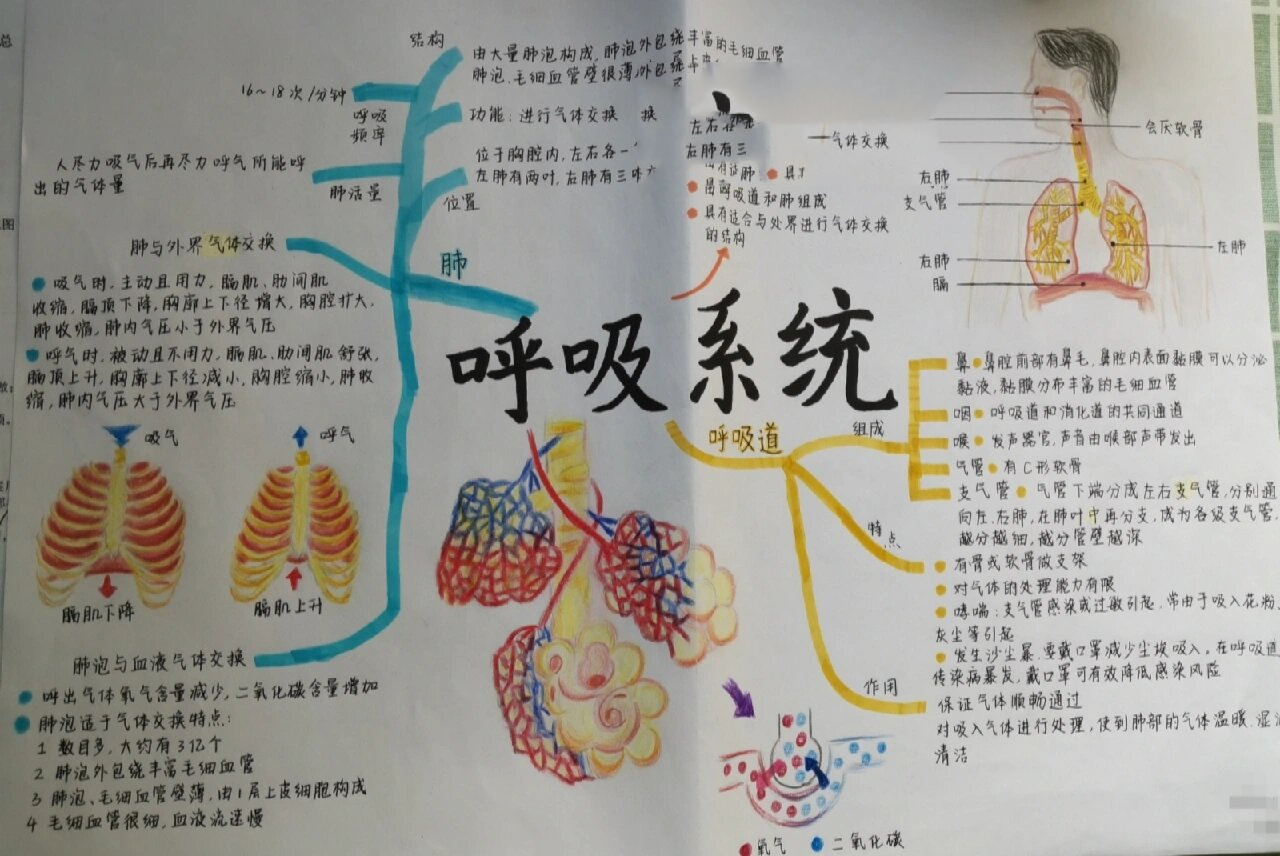 呼吸系统
结构
由大量肺泡构成,肺泡外包绕丰富的毛细血管
肺泡、毛细血管壁很薄,外包绕
功能:进行气体交换 换
位于胸腔内,左右各一
左肺有两叶,右肺有三
位置
16~18次/分钟
呼吸
频率
人尽力吸气后再尽力呼气所能呼
出的气体量
肺活量
肺与外界气体交换
肺
吸气时,主动且用力,膈肌、肋间肌
收缩,膈顶下降,胸廓上下径增大,胸腔扩大,
肺收缩,肺内气压小于外界气压
呼气时,被动且不用力,膈肌、肋间肌舒张,
膈顶上升,胸廓上下径减小,胸腔缩小,肺收
缩,肺内气压大于外界气压
吸气
呼气
膈肌下降
膈肌上升
肺泡与血液气体交换
呼出气体氧气含量减少,二氧化碳含量增加
肺泡适于气体交换特点:
1 数目多,大约有3亿个
2 肺泡外包绕丰富毛细血管
3 肺泡、毛细血管壁薄,由1层上皮细胞构成
4 毛细血管很细,血液流速慢
左右
右肺有三
气体交换
呼吸道和肺组成
具有适合与外界进行气体交换
的结构
会厌软骨
右肺
支气管
左肺
右肺
膈
呼吸道
组成
鼻 鼻腔前部有鼻毛,鼻腔内表面黏膜可以分泌
黏液,黏膜分布丰富的毛细血管
咽 呼吸道和消化道的共同通道
喉 发声器官,声音由喉部声带发出
气管 有C形软骨
支气管 气管下端分成左右支气管,分别通
向左、右肺,在肺叶中再分支,成为各级支气管,
越分越细,越分管壁越深
特点
有骨或软骨做支架
对气体的处理能力有限
哮喘:支气管感染或过敏引起,常由于吸入花粉、
灰尘等引起
发生沙尘暴,要戴口罩减少尘埃吸入。在呼吸道
传染病暴发,戴口罩可有效降低感染风险
作用
保证气体顺畅通过
对吸入气体进行处理,使到肺部的气体温暖、湿润
清洁
氧气
二氧化碳
总
图